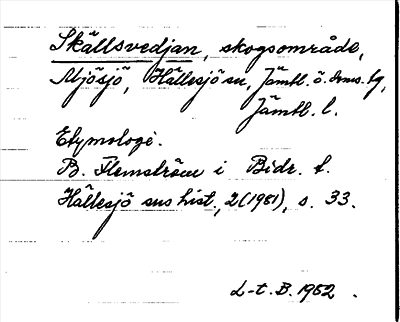 Skällsvedjan, skogsområde,
Mjösjö, Hällesjö sn, Jämtl. ö. dms. tg,
Jämtl. l.
Etymologi.
B. Flemström i Bidr. t.
Hällesjö sns hist., 2(1951), s. 33.
L-t. B. 1952.